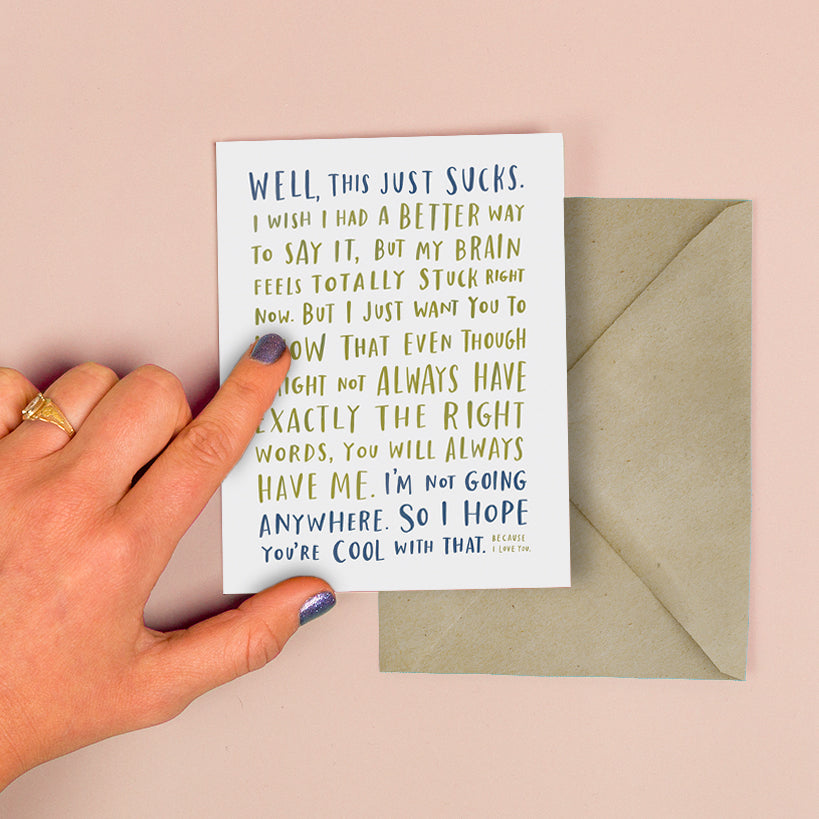 WELL, THIS JUST SUCKS.
I WISH I HAD A BETTER WAY
TO SAY IT, BUT MY BRAIN
FEELS TOTALLY STUCK RIGHT
NOW. BUT I JUST WANT YOU TO
KNOW THAT EVEN THOUGH
MIGHT NOT ALWAYS HAVE
EXACTLY THE RIGHT
WORDS, YOU WILL ALWAYS
HAVE ME. I'M NOT GOING
ANYWHERE. SO I HOPE
YOU'RE COOL WITH THAT.
BECAUSE
I LOVE YOU.